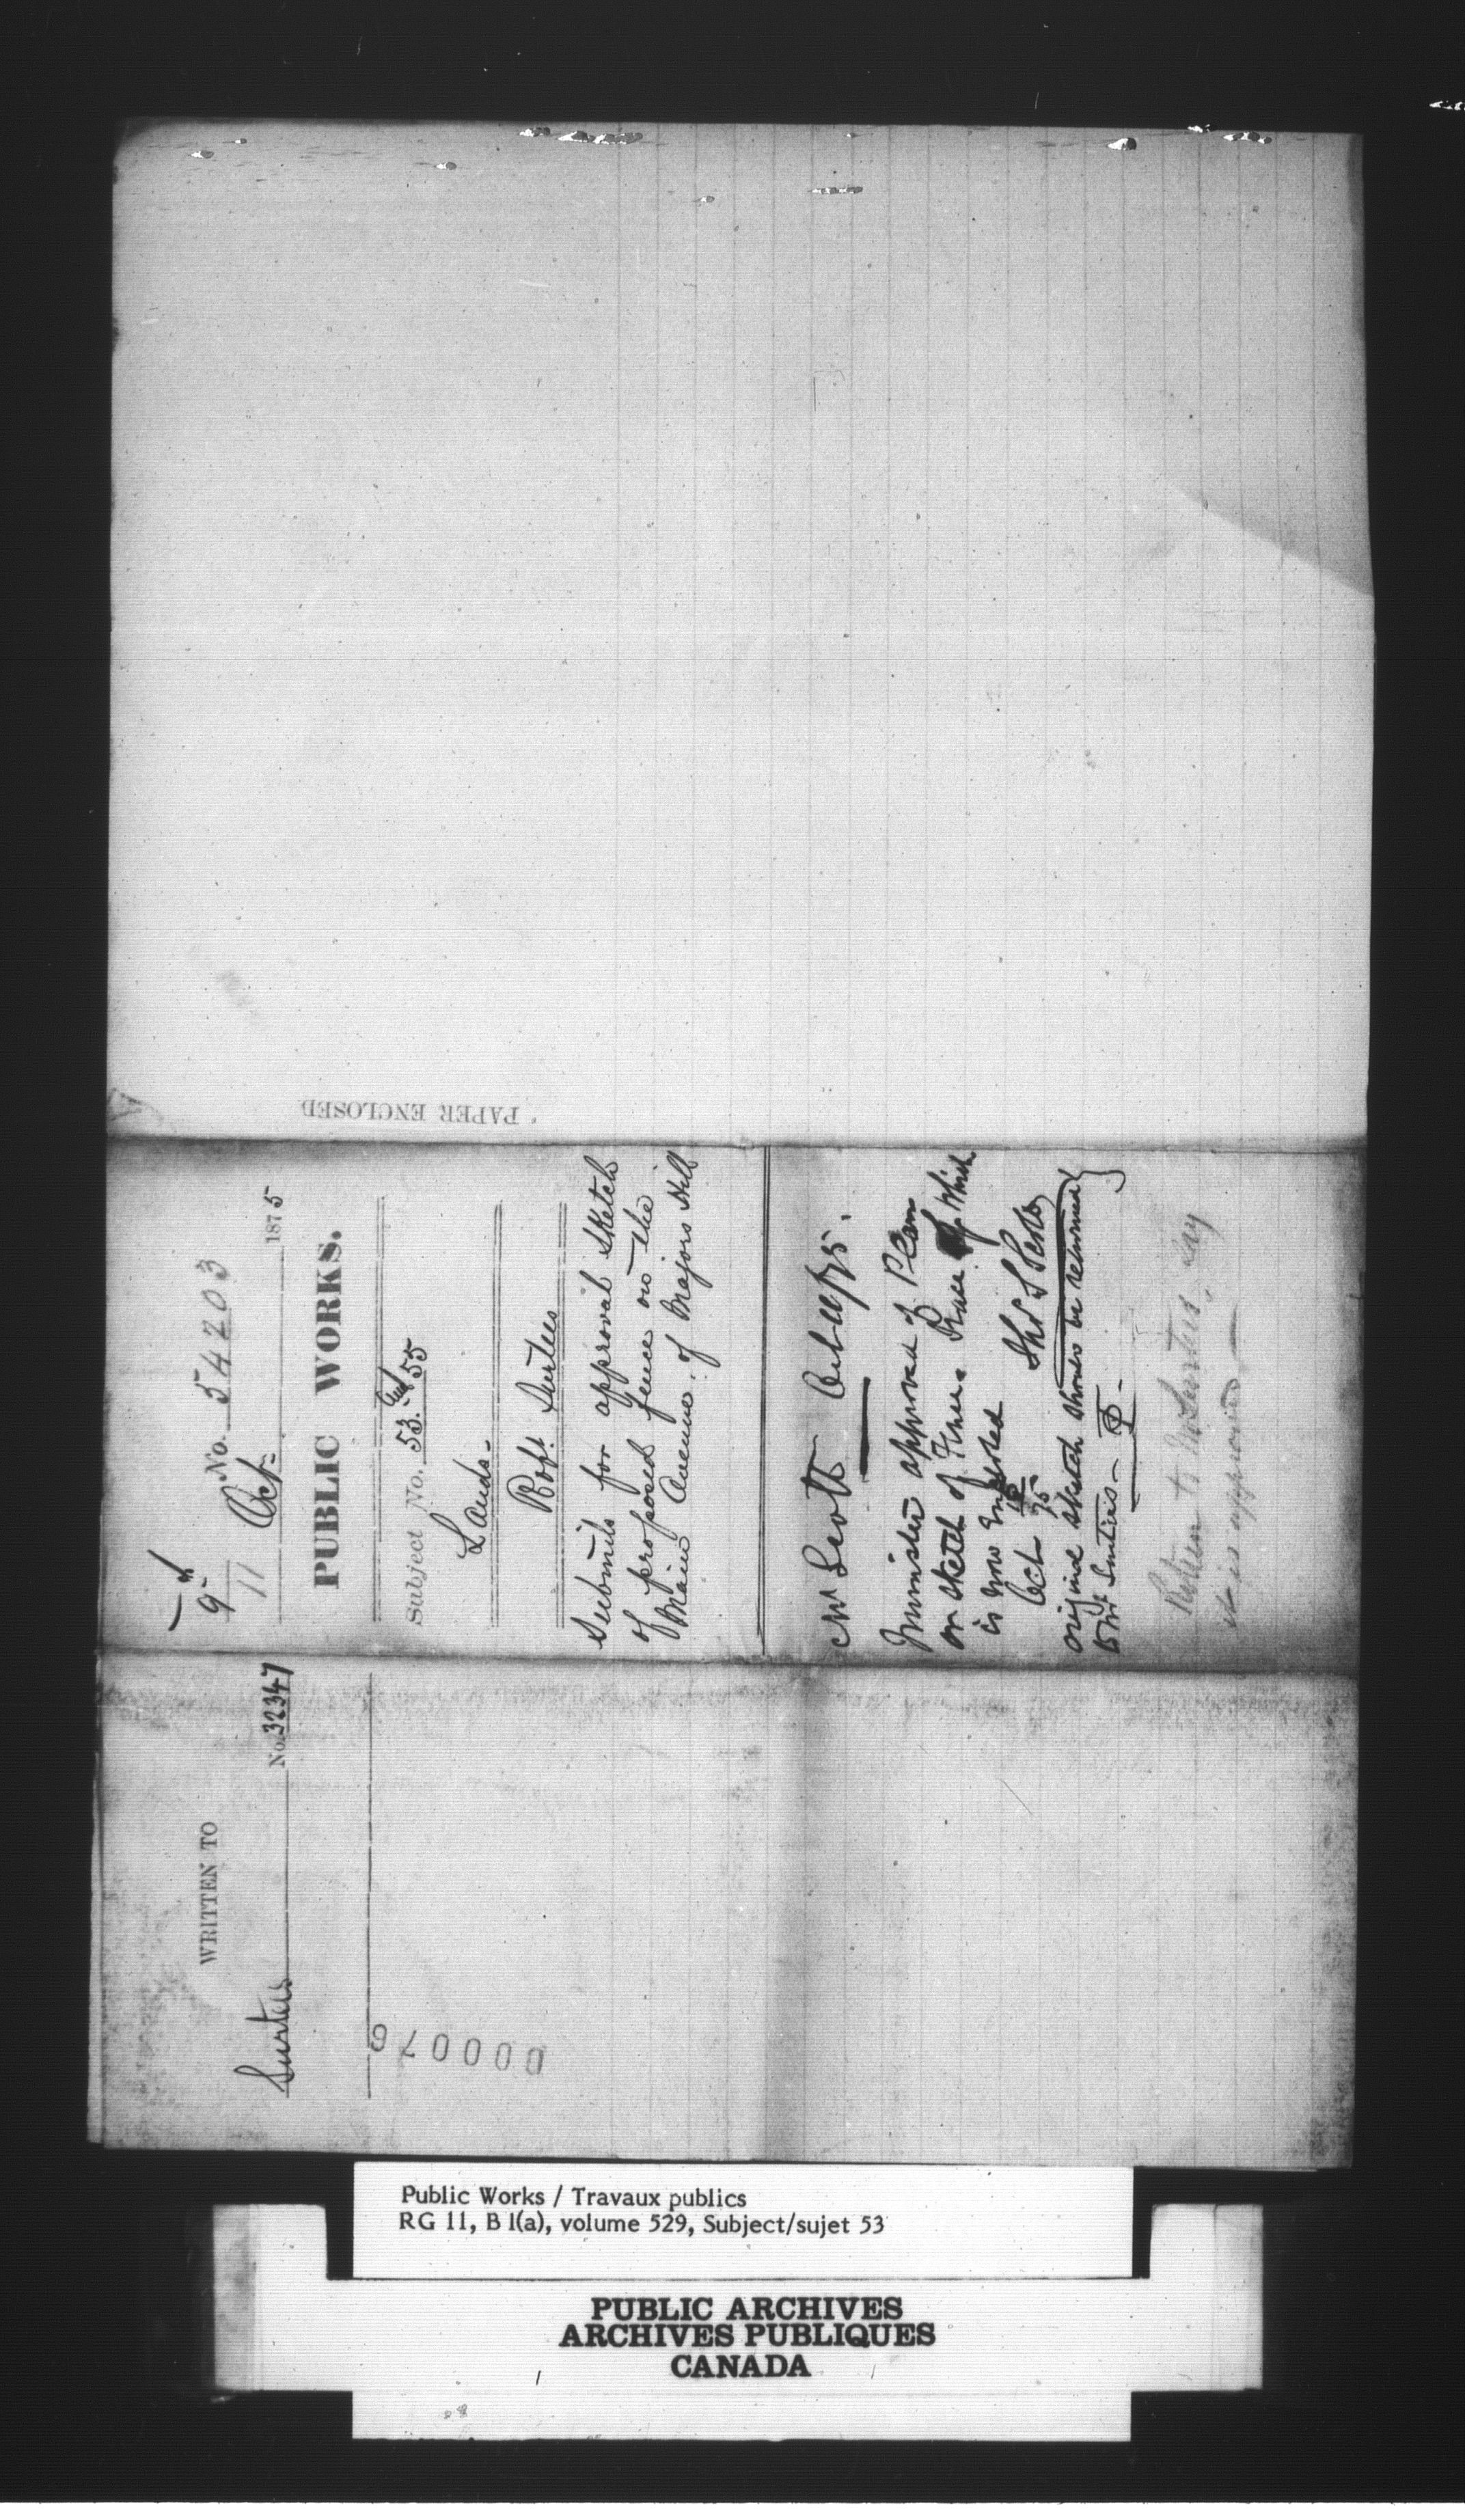 9th
11 Oct. 1875
No. 54203
PUBLIC WORKS.
Subject No. 53. 55
Lands.
Robt. Surtees
Submits for approval sketch
of proposed fence on the
Main Avenue of Majors Hill
Mr Scott Oct 11/75.
Minister approves of Plan
on sketch of Fence. Trace of which
is now
Oct 15 75
original sketch should be returned
to Mr Surtees
Return to Mr Surtees, say
it is approved
PAPER ENCLOSED
WRITTEN TO
Surtees No. 32347
000076
Public Works / Travaux publics
RG 11, B 1(a), volume 529, Subject/sujet 53
PUBLIC ARCHIVES
ARCHIVES PUBLIQUES
CANADA